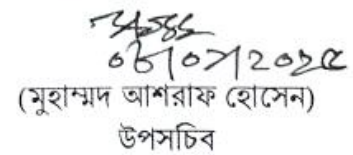 ০৮/০৭/২০২৫
(মুহাম্মদ আশরাফ হোসেন)
উপসচিব